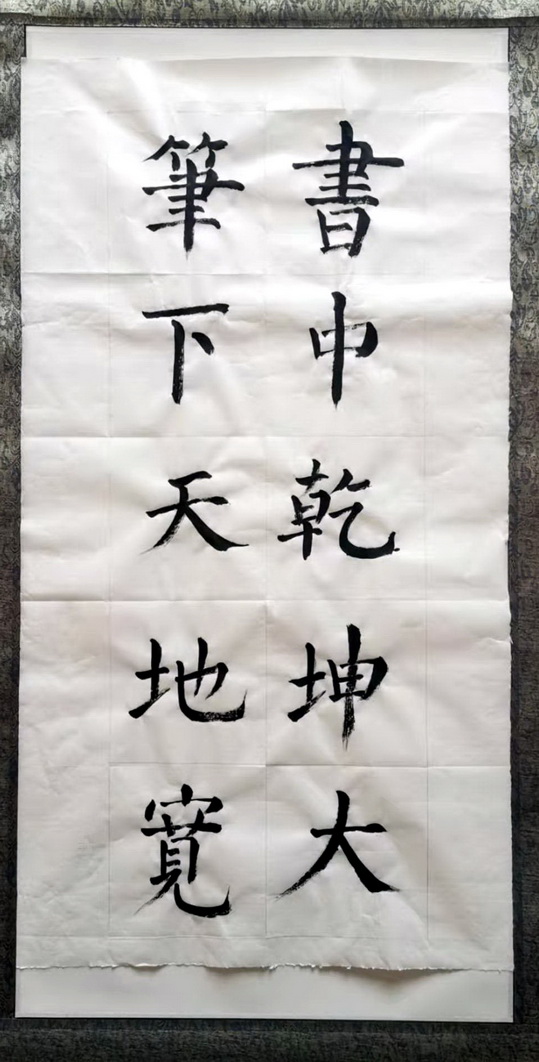 書中乾坤大
筆下天地寬